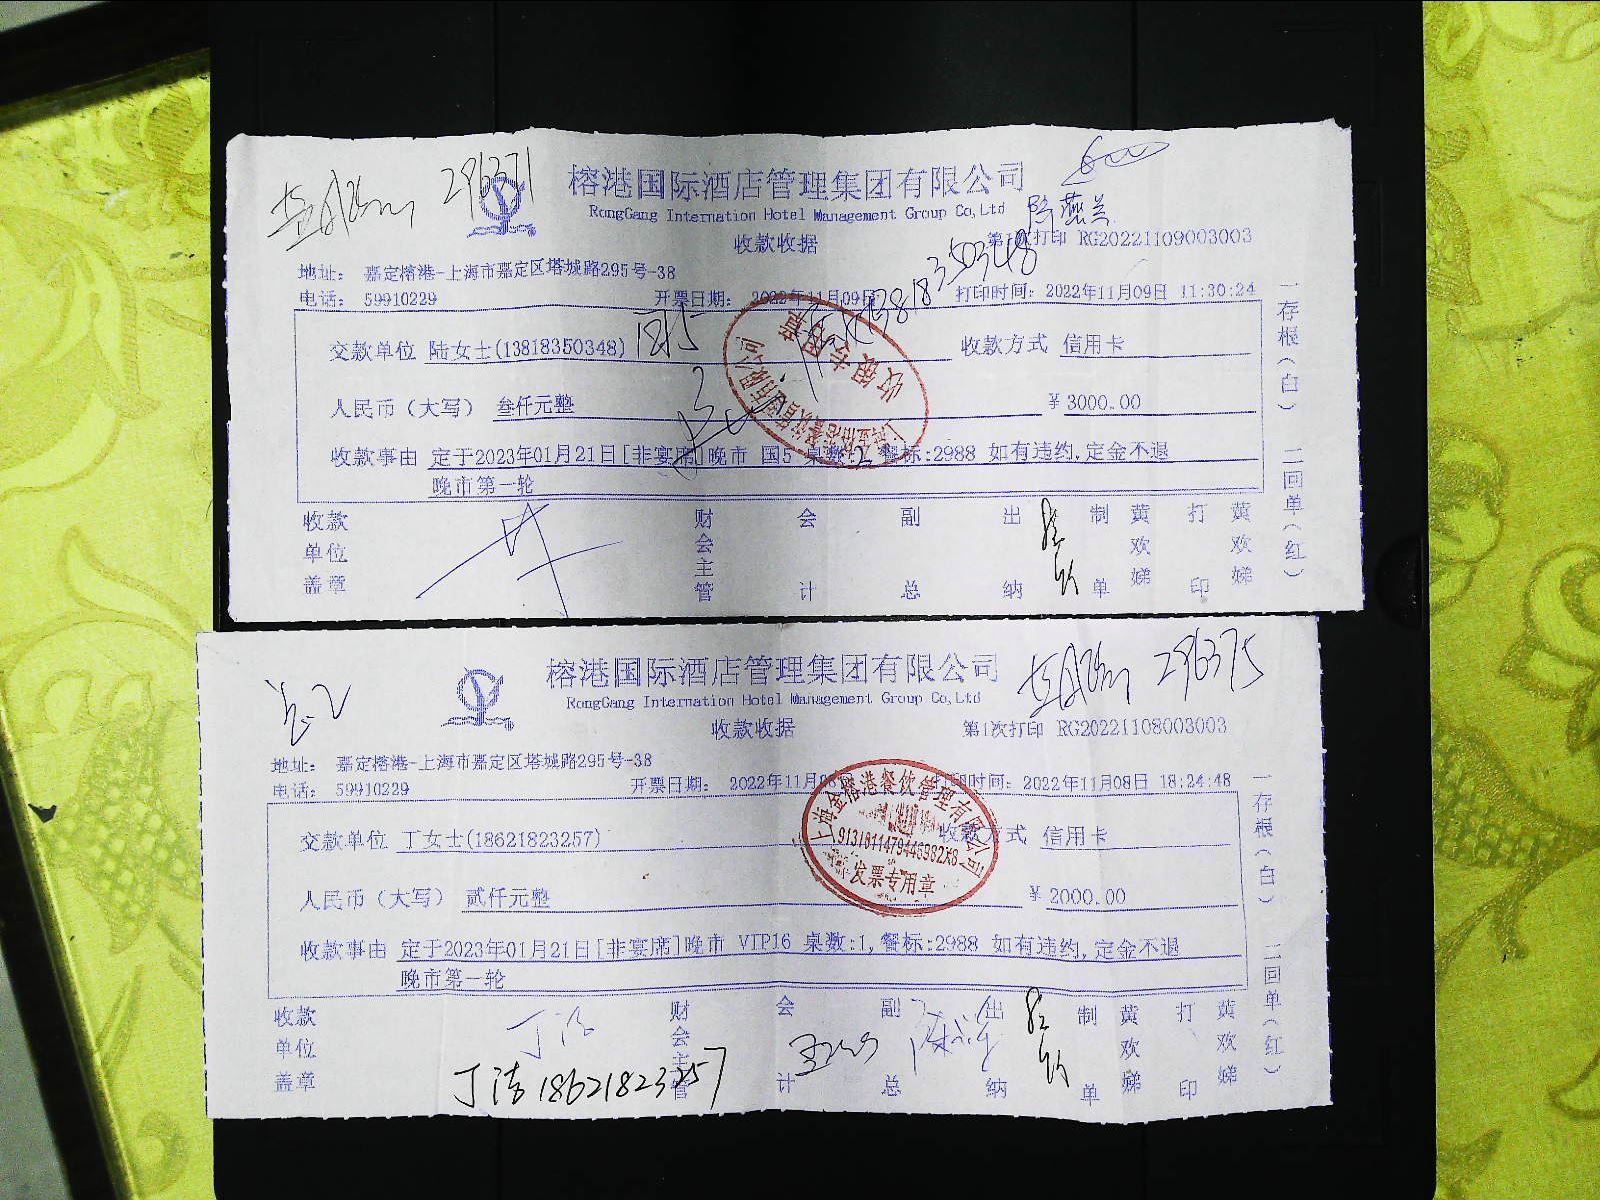 296371
榕港国际酒店管理集团有限公司
RongGang Internation Hotel Management Group Co,Ltd
陆燕兰
收款收据
第1次打印 RG20221109003003
地址: 嘉定榕港-上海市嘉定区塔城路295号-38
电话: 59910229 开票日期: 2022年11月09日 打印时间: 2022年11月09日 11:30:24
13818350348
交款单位 陆女士(13818350348) 收款方式 信用卡
人民币(大写) 叁仟元整 ¥3000.00
收款事由 定于2023年01月21日[非宴席]晚市 国5 桌数: 餐标:2988 如有违约,定金不退
晚市第一轮
收款单位盖章 财会主管 会计 副总 出纳 制单 黄欢娣 打印 黄欢娣
一存根(白) 二回单(红)
收银专用章
296375
榕港国际酒店管理集团有限公司
RongGang Internation Hotel Management Group Co,Ltd
收款收据
第1次打印 RG20221108003003
地址: 嘉定榕港-上海市嘉定区塔城路295号-38
电话: 59910229 开票日期: 2022年11月08日 打印时间: 2022年11月08日 18:24:48
交款单位 丁女士(18621823257) 收款方式 信用卡
人民币(大写) 贰仟元整 ¥2000.00
收款事由 定于2023年01月21日[非宴席]晚市 VIP16 桌数:1,餐标:2988 如有违约,定金不退
晚市第一轮
收款单位盖章 财会主管 会计 副总 出纳 制单 黄欢娣 打印 黄欢娣
丁洁
丁洁 18621823257
一存根(白) 二回单(红)
上海金榕港餐饮管理有限公司
发票专用章